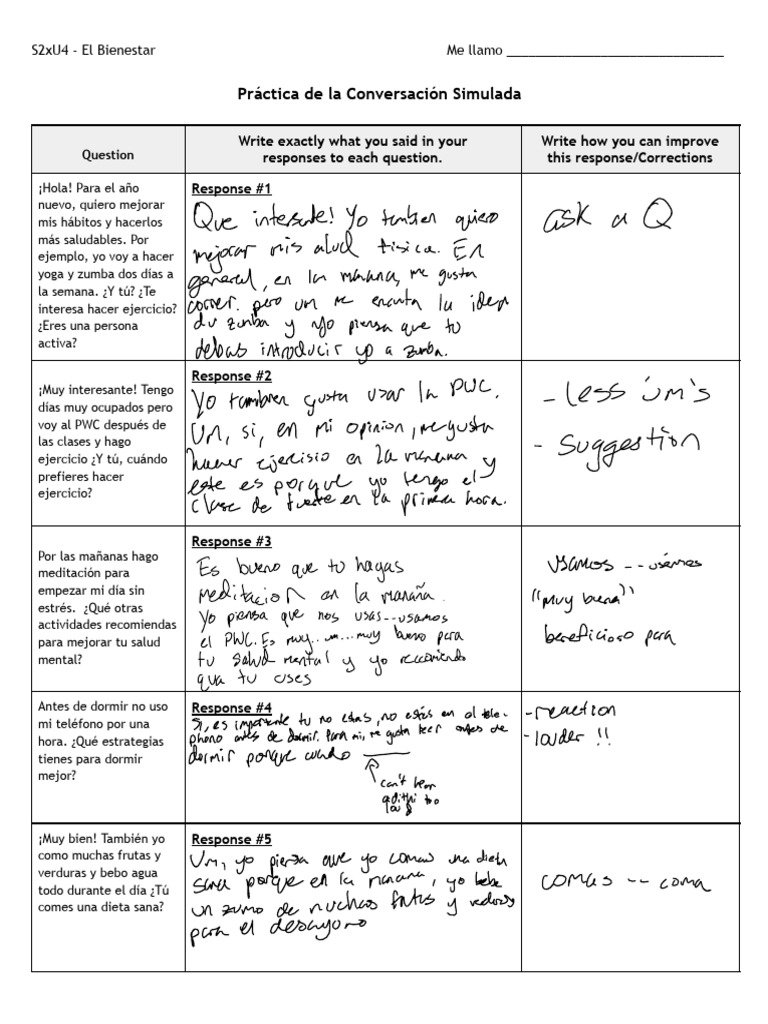 S2xU4 - El Bienestar
Me llamo ______________________________
Práctica de la Conversación Simulada
Question
Write exactly what you said in your
responses to each question.
Write how you can improve
this response/Corrections
¡Hola! Para el año
nuevo, quiero mejorar
mis hábitos y hacerlos
más saludables. Por
ejemplo, yo voy a hacer
yoga y zumba dos días a
la semana. ¿Y tú? ¿Te
interesa hacer ejercicio?
¿Eres una persona
activa?
Response #1
Que intersante! Yo tambien quiero
mejorar mis alud fisica. En
general, en la mañana, me gusta
correr. pero um me encanta la idea
du zumba y yo piensa que tu
debas introducir yo a zumba.
ask a Q
¡Muy interesante! Tengo
días muy ocupados pero
voy al PWC después de
las clases y hago
ejercicio ¿Y tú, cuándo
prefieres hacer
ejercicio?
Response #2
Yo tambien gusta usar la PWC.
Um, si, en mi opinion, me gusta
hacer ejercisio en la manana y
este es porque yo tengo el
clase de fuerte en la primera hora.
- less úm's
- suggestion
Por las mañanas hago
meditación para
empezar mi día sin
estrés. ¿Qué otras
actividades recomiendas
para mejorar tu salud
mental?
Response #3
Es bueno que tu hagas
meditacion en la manaña.
Yo piensa que nos usas--usamos
el PWC. Es muy...um...muy bueno para
tu salud mental y yo recomiendo
qua tu uses
usamos -- usemos
"muy buena"
beneficioso para
Antes de dormir no uso
mi teléfono por una
hora. ¿Qué estrategias
tienes para dormir
mejor?
Response #4
Si, es importante tu no estas, no estés en al tele-
phono antes de dormir. Para mi, me gusta leer antes de
dormir porque cuando ____
can't hear
- reaction
- louder !!
¡Muy bien! También yo
como muchas frutas y
verduras y bebo agua
todo durante el día ¿Tú
comes una dieta sana?
Response #5
Um, yo piensa que yo comas una dieta
sana porque en la manana, yo bebe
un zumo de muchaos frutas y
para el desayuno
comas -- coma